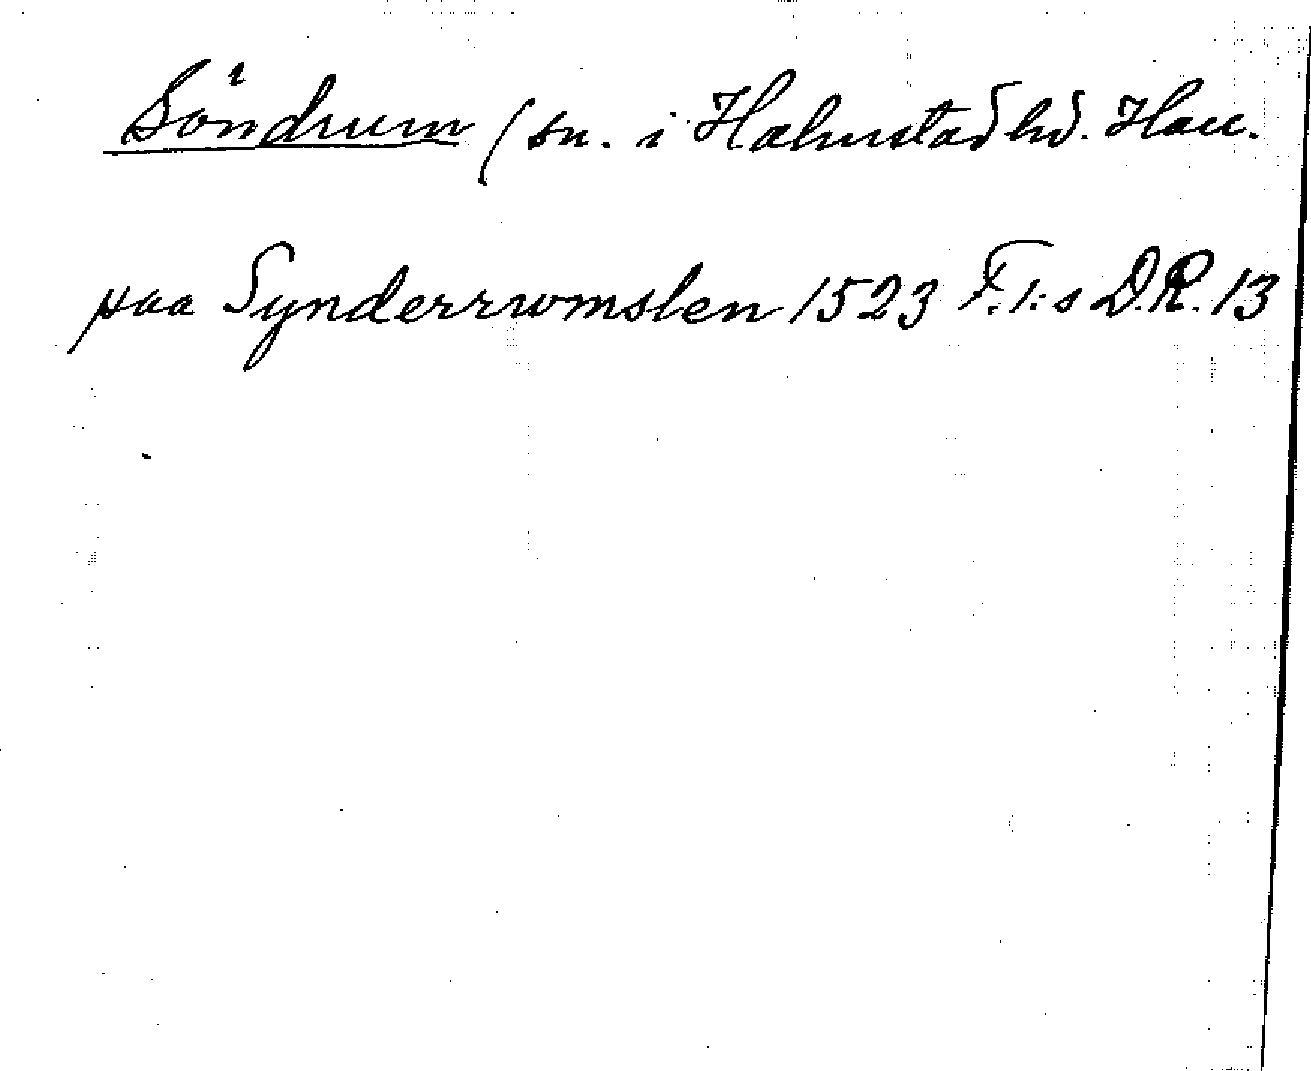 Söndrum (sn. i Halmstad hd. Hall.
paa Synderrwmslen 1523 F.1:s D.R. 13